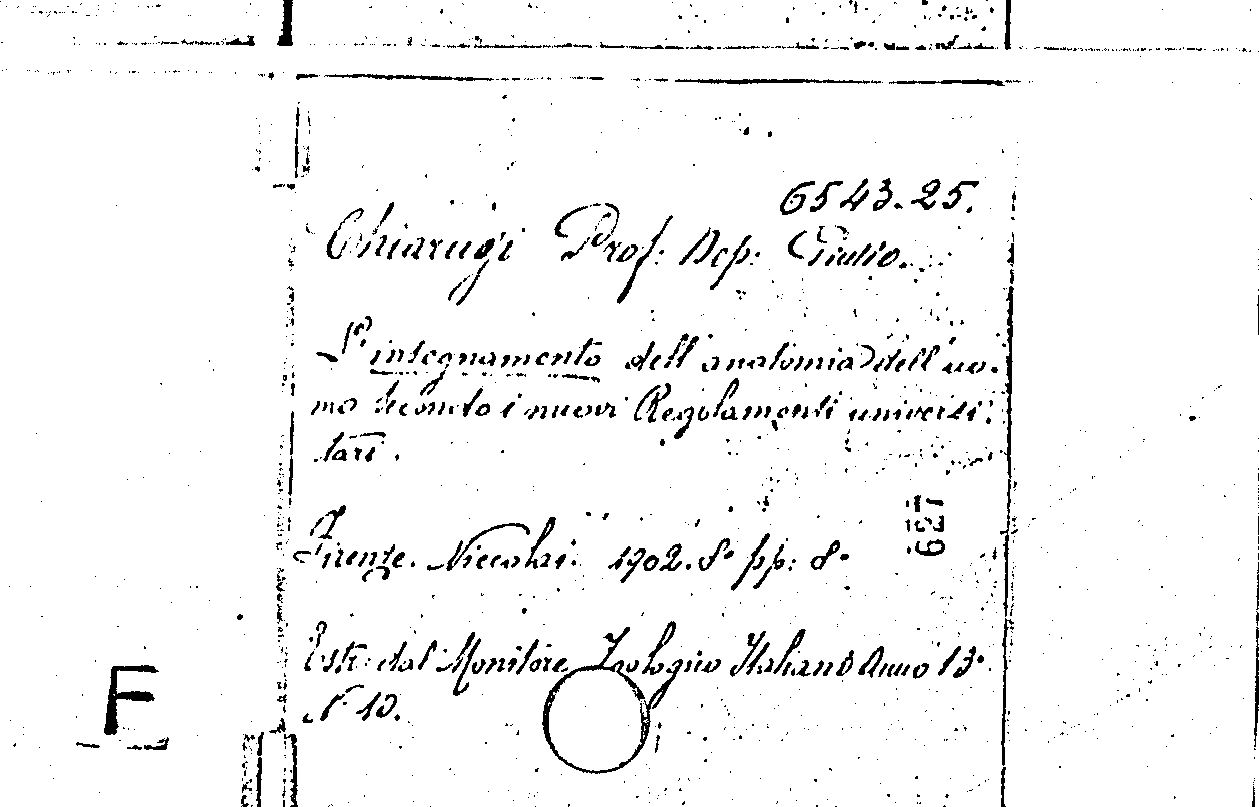 6543.25.
Chiarugi Prof: Dep: Giulio.
L'insegnamento dell'anatomia dell'uo-
mo secondo i nuovi Regolamenti universi-
tari.
627
Firenze. Niccolai. 1902. 8° pp: 8°
Estr: dal Monitore Zoologico Italiano Anno 13°
N° 10.
F